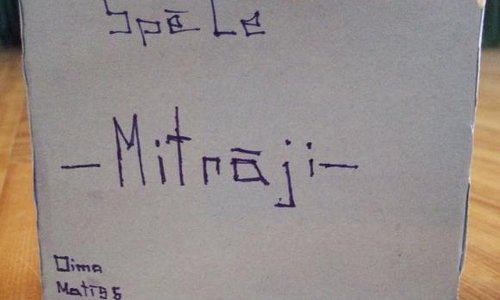 Spēle
-Mitrāji-
Dima
Matīss